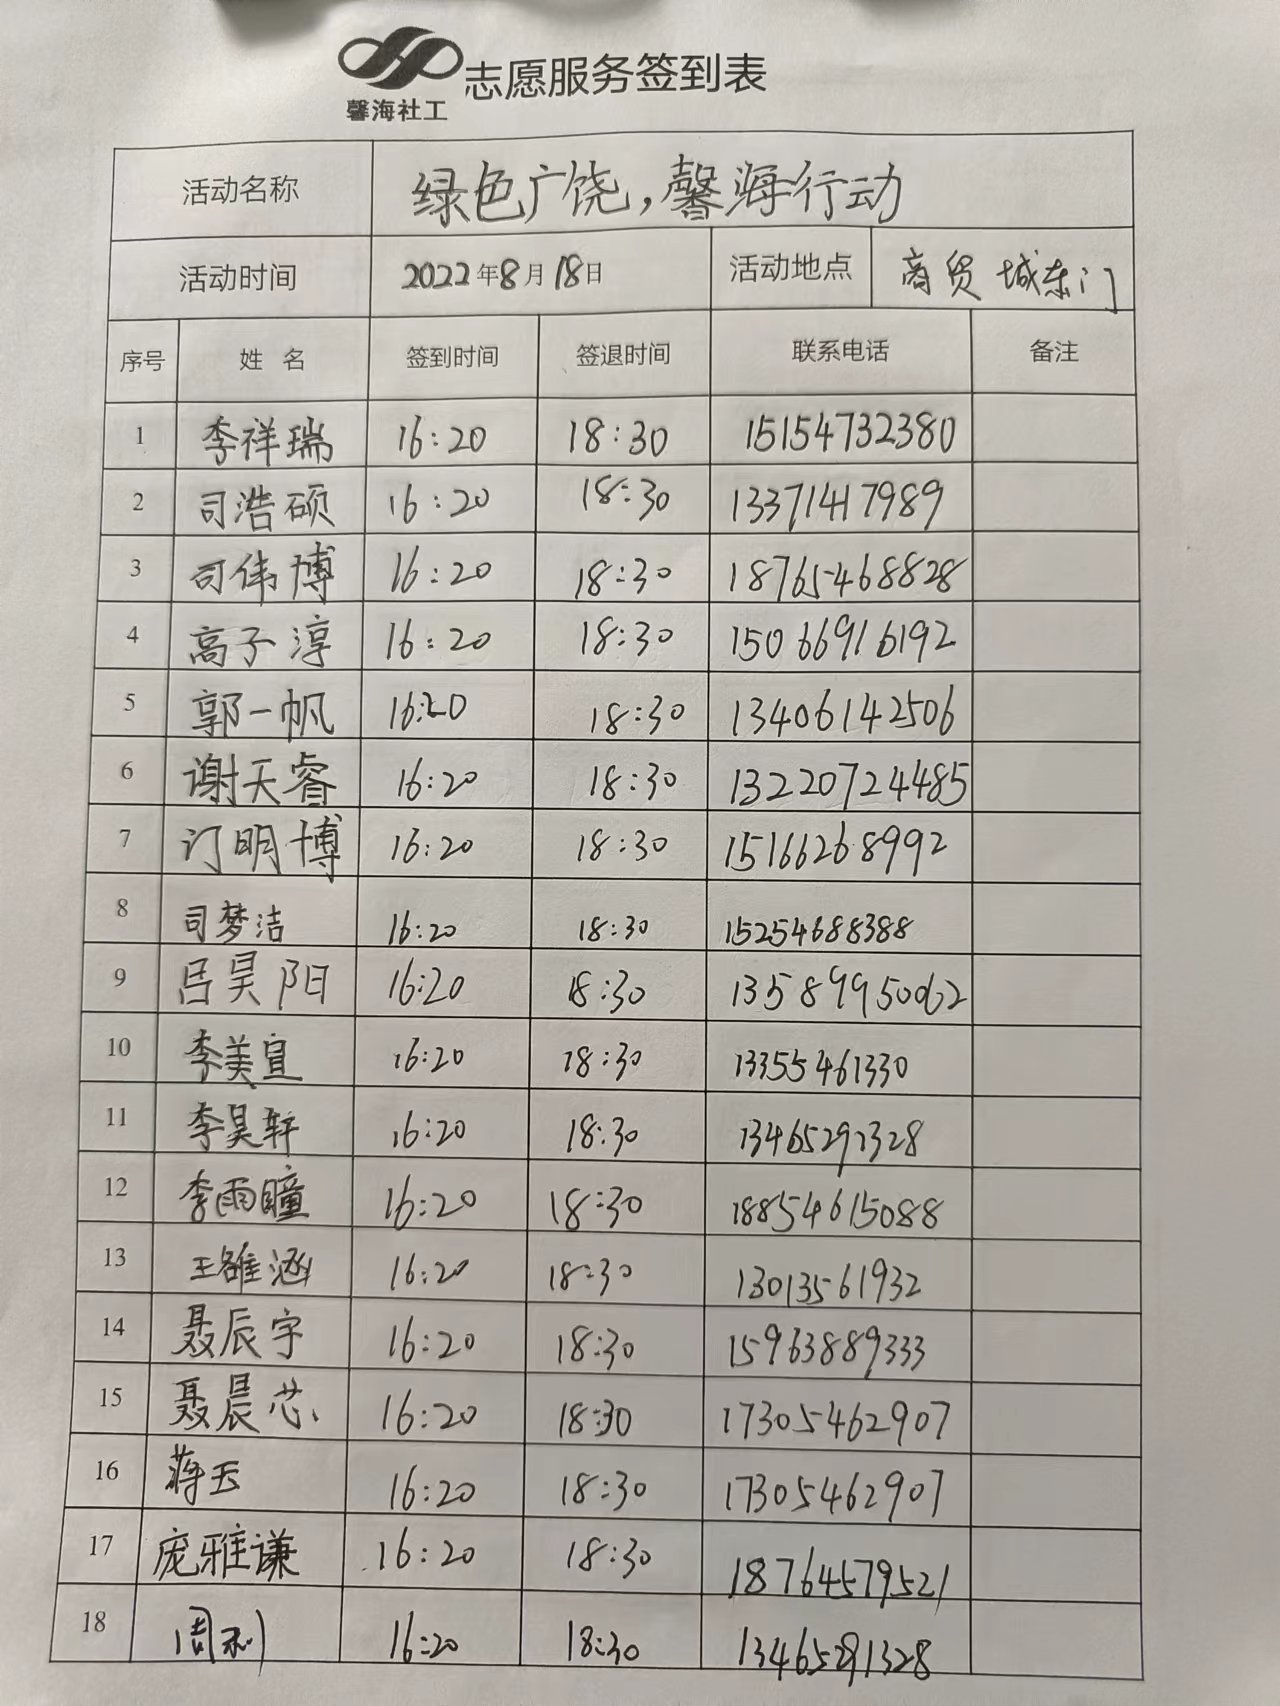 馨海社工
志愿服务签到表
活动名称 绿色广饶，馨海行动
活动时间 2022年8月18日 活动地点 商贸城东门
序号 姓名 签到时间 签退时间 联系电话 备注
1 李祥瑞 16:20 18:30 15154732380
2 司浩硕 16:20 18:30 13371417989
3 司伟博 16:20 18:30 18765468828
4 高子淳 16:20 18:30 15066916192
5 郭一帆 16:20 18:30 13406142506
6 谢天睿 16:20 18:30 13220724485
7 订明博 16:20 18:30 15166268992
8 司梦洁 16:20 18:30 15254688388
9 吕昊阳 16:20 18:30 13589950062
10 李美宣 16:20 18:30 13355461330
11 李昊轩 16:20 18:30 13465291328
12 李雨瞳 16:20 18:30 18854615088
13 王雒涵 16:20 18:30 13013561932
14 聂辰宇 16:20 18:30 15963889333
15 聂晨芯 16:20 18:30 17305462907
16 蒋玉 16:20 18:30 17305462907
17 庞雅谦 16:20 18:30 18764579521
18 周利 16:20 18:30 13465291328